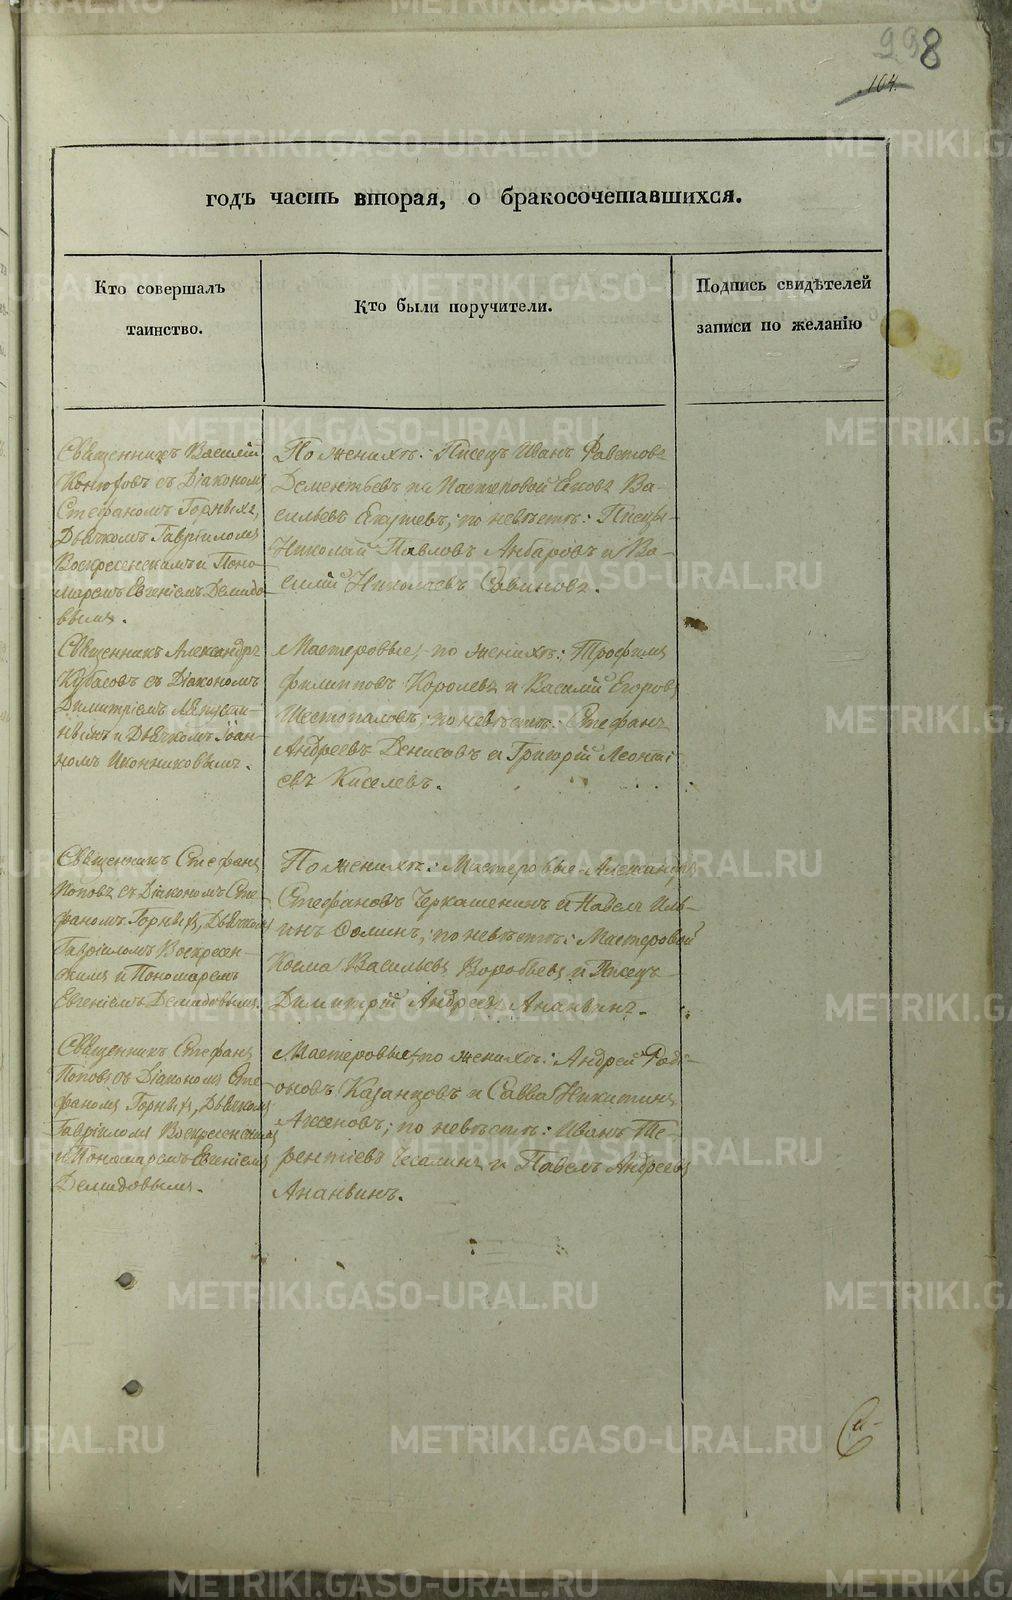 998
104.
годъ часть вторая, о бракосочетавшихся.
Кто совершалъ
таинство.
Кто были поручители.
Подпись свидѣтелей
записи по желанію
Священникъ Василій
Конюховъ съ Діакономъ
Стефаномъ Горныхъ,
Дьячкомъ Гавріиломъ
Воскресенскимъ и Поно-
маремъ Евгеніемъ Демидо-
вымъ.
По женихѣ: Писецъ Иванъ
Дементьевъ и Мастеровой Ва-
сильевъ по невѣстѣ: Писцы
Николай Павловъ Анбаровъ и Ва-
силій Николаевъ Савиновъ.
Священникъ Александръ
Кубасовъ съ Діакономъ
Димитріемъ
и Дьячкомъ Іоан-
номъ Иконниковымъ.
Мастеровые, по женихѣ: Трофимъ
Филипповъ Королевъ и Василій Егоровъ
Шестопаловъ, по невѣстѣ: Стефанъ
Андреевъ Денисовъ и Григорій Леонті-
евъ Киселевъ.
Священникъ Стефанъ
Поповъ съ Діакономъ Сте-
фаномъ Горныхъ, Дьячкомъ
Гавріиломъ Воскресен-
скимъ и Пономаремъ
Евгеніемъ Демидовымъ.
По женихѣ: Мастеровые Александръ
Стефановъ Черкашенинъ и Павелъ Иль-
инъ Фоминъ, по невѣстѣ: Мастеровой
Косма Васильевъ Воробьевъ и Писецъ
Димитрій Андреевъ Ананьинъ.
Священникъ Стефанъ
Поповъ съ Діакономъ Сте-
фаномъ Горныхъ, Дьячкомъ
Гавріиломъ Воскресенскимъ
и Пономаремъ Евгеніемъ
Демидовымъ.
Мастеровые, по женихѣ: Андрей Роді-
оновъ Казанцовъ и Савва Никитинъ
Аксеновъ; по невѣстѣ: Иванъ Те-
рентіевъ и Павелъ Андреевъ
Ананьинъ.
METRIKI.GASO-URAL.RU